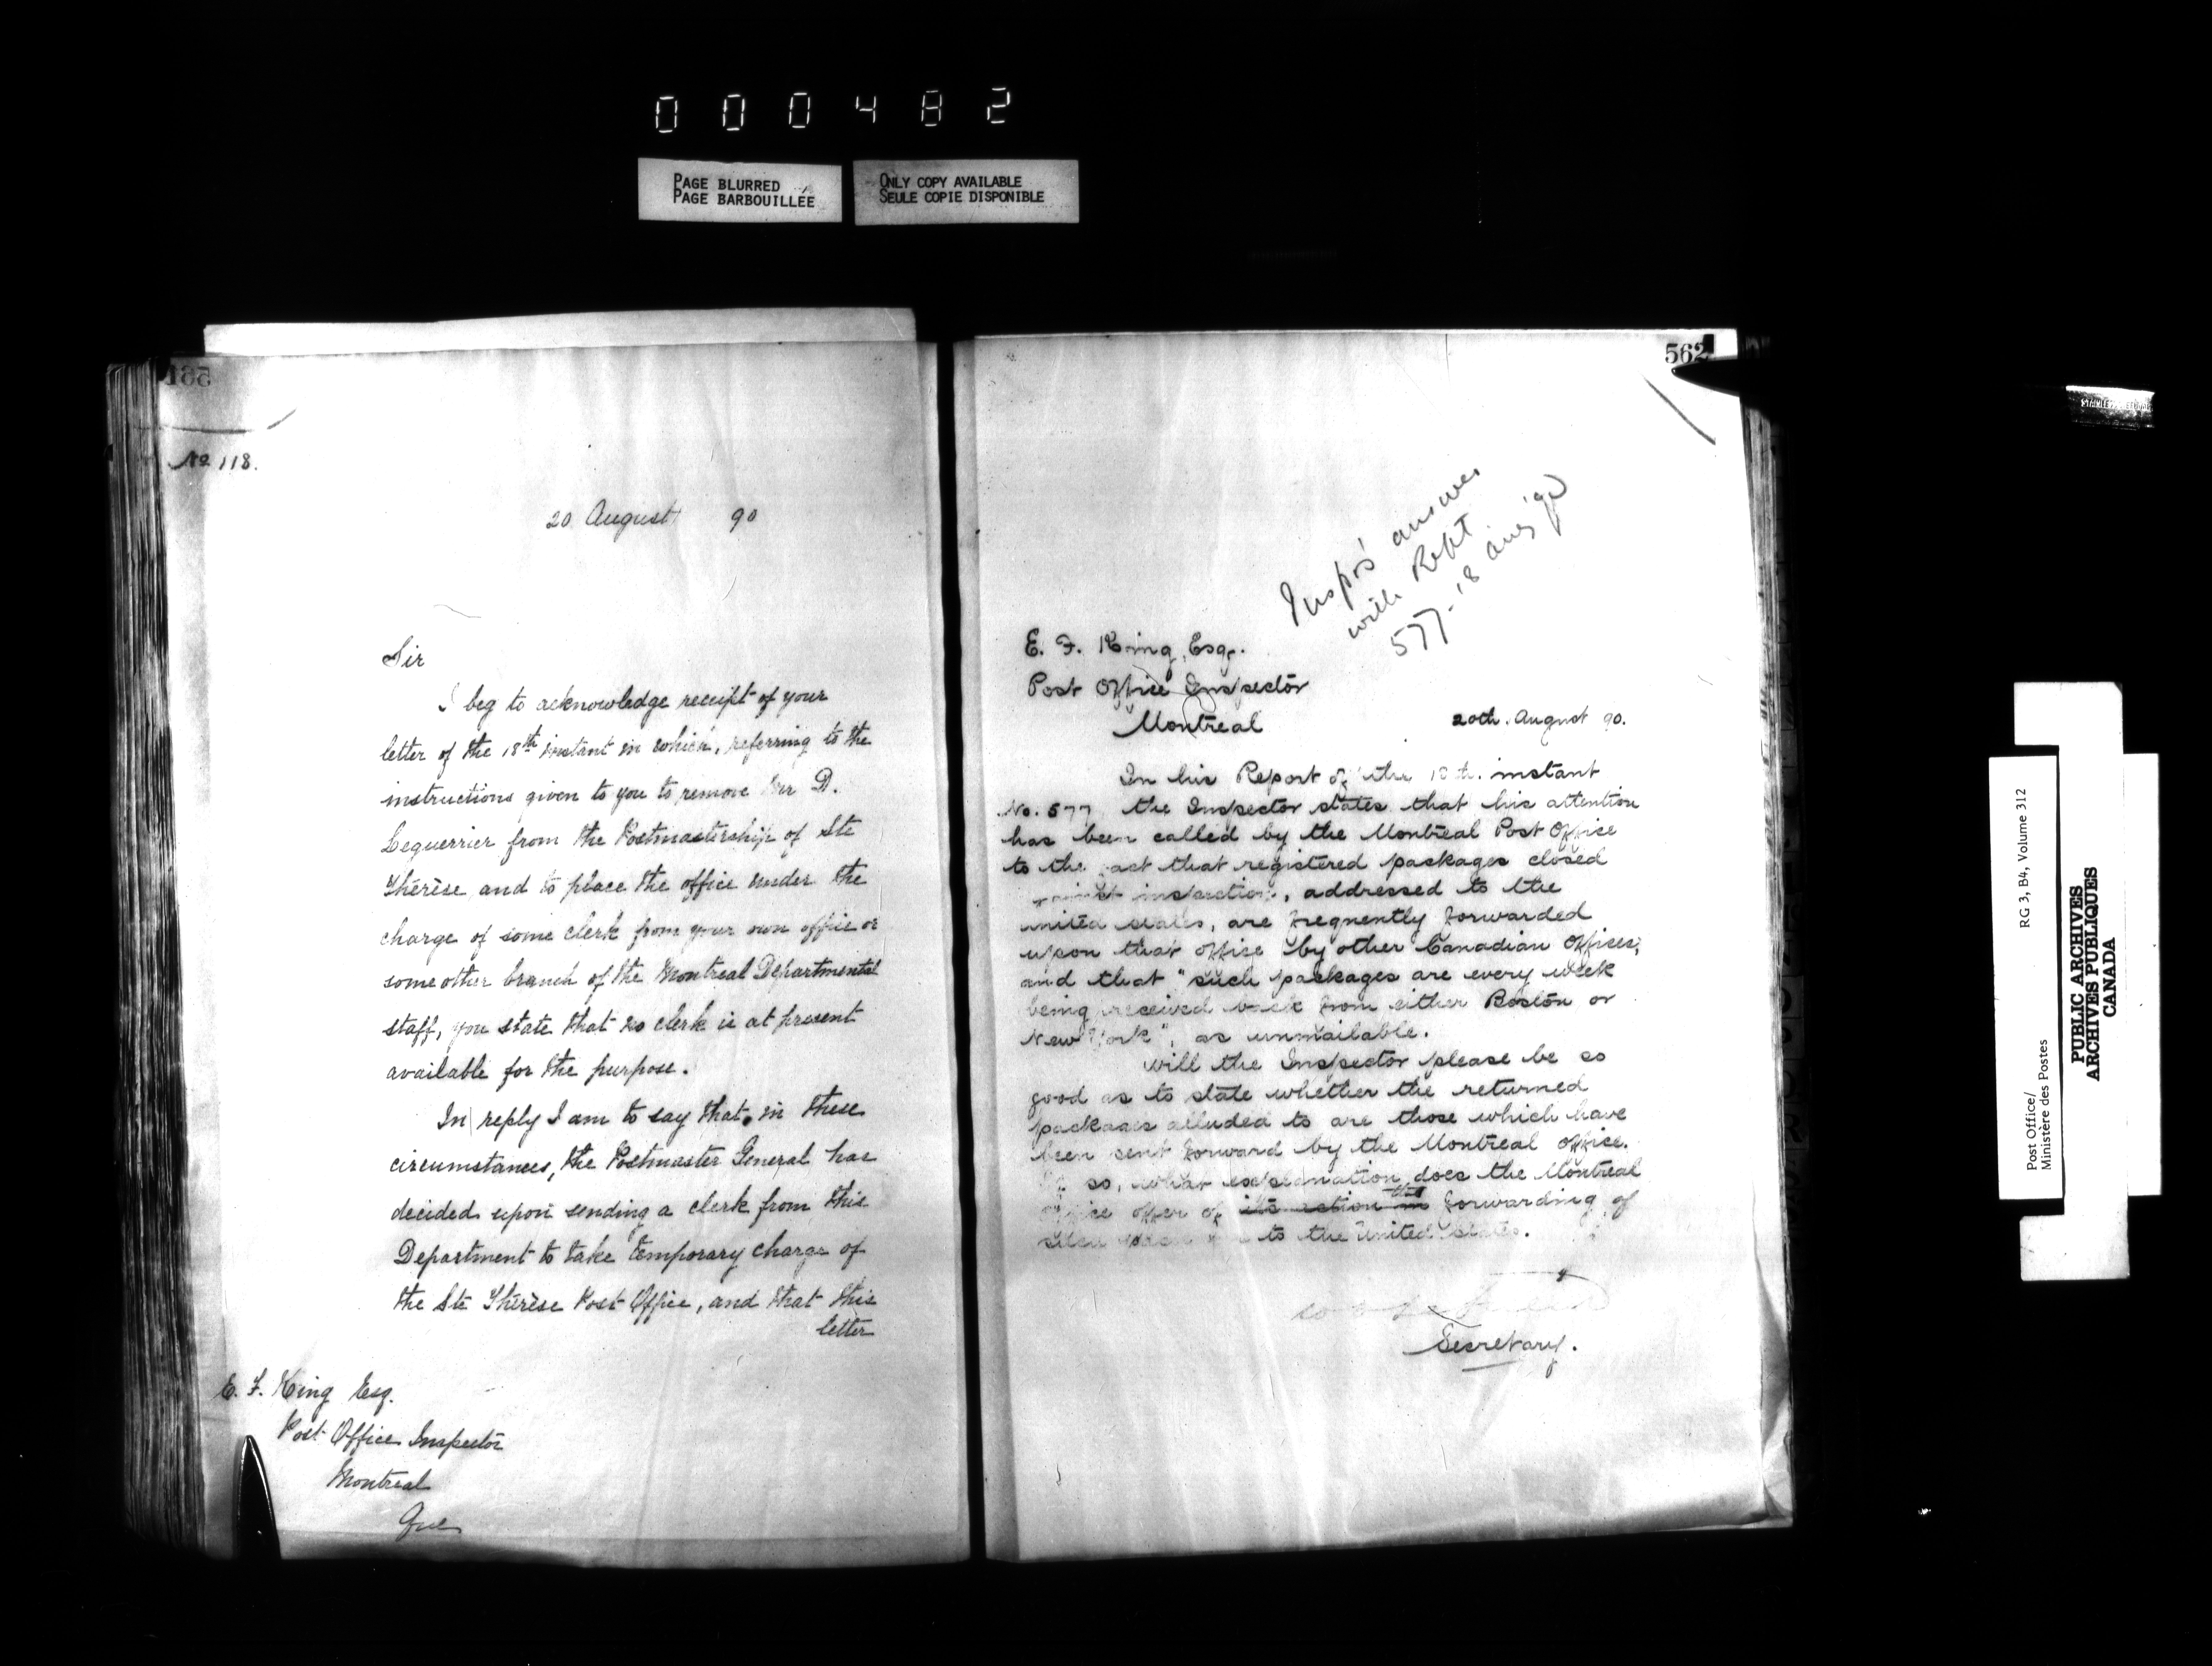 000482
PAGE BLURRED
PAGE BARBOUILLÉE
ONLY COPY AVAILABLE
SEULE COPIE DISPONIBLE
No 118.
20 August 90
Sir
I beg to acknowledge receipt of your
letter of the 18th instant in which, referring to the
instructions given to you to remove Mr D.
Lequerrier from the Postmastership of Ste
Thérèse and to place the office under the
charge of some clerk from your own office or
some other branch of the Montreal Departmental
staff, you state that no clerk is at present
available for the purpose.
In reply I am to say that, in these
circumstances, the Postmaster General has
decided upon sending a clerk from this
Department to take temporary charge of
the Ste Thérèse Post Office, and that this
letter
E. F. King Esq.
Post Office Inspector
Montreal
Que
562
Inspr's answer
with Rept
577-18 aug '90
E. F. King, Esqr.
Post Office Inspector
Montreal
20th. August 90.
In his Report of the instant
No. 577 the Inspector states that his attention
has been called by the Montreal Post Office
to the fact that registered packages closed
against inspection, addressed to the
United States, are frequently forwarded
upon that office by other Canadian Offices,
and that "such packages are every week
being received back from either Boston or
New York", as unmailable.
Will the Inspector please be so
good as to state whether the returned
packages alluded to are those which have
been sent forward by the Montreal office.
If so, what explanation does the Montreal
office offer of its action in the forwarding of
such to the United States.
Secretary.
RG 3, B4, Volume 312
Post Office/
Ministère des Postes
PUBLIC ARCHIVES
ARCHIVES PUBLIQUES
CANADA